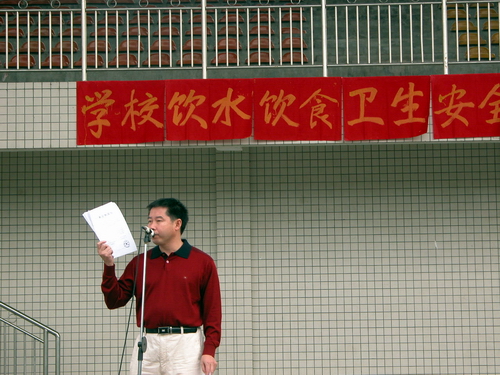 学校饮水饮食卫生安全